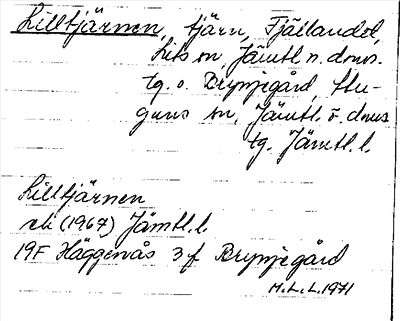 Lilltjärnen, tjärn, Fjällandet,
Lits sn, Jämtl. n. doms.
tg. o. Brynjegård, Stu-
guns sn, Jämtl. ö. doms
tg. Jämtl. l.
Lilltjärnen
ek (1967) Jämtl. l.
19F Häggenås 3 f Brynjegård
M.L.L. 1971